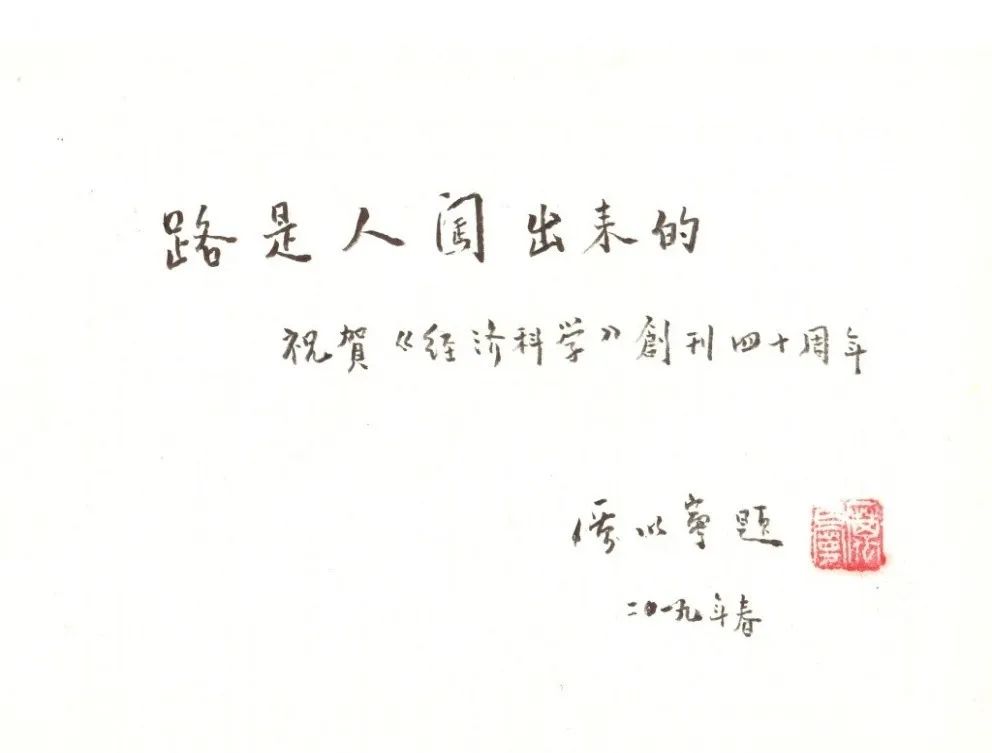 路是人闯出来的
祝賀《经济科学》創刊四十周年
厉以寧题
二〇一九年春